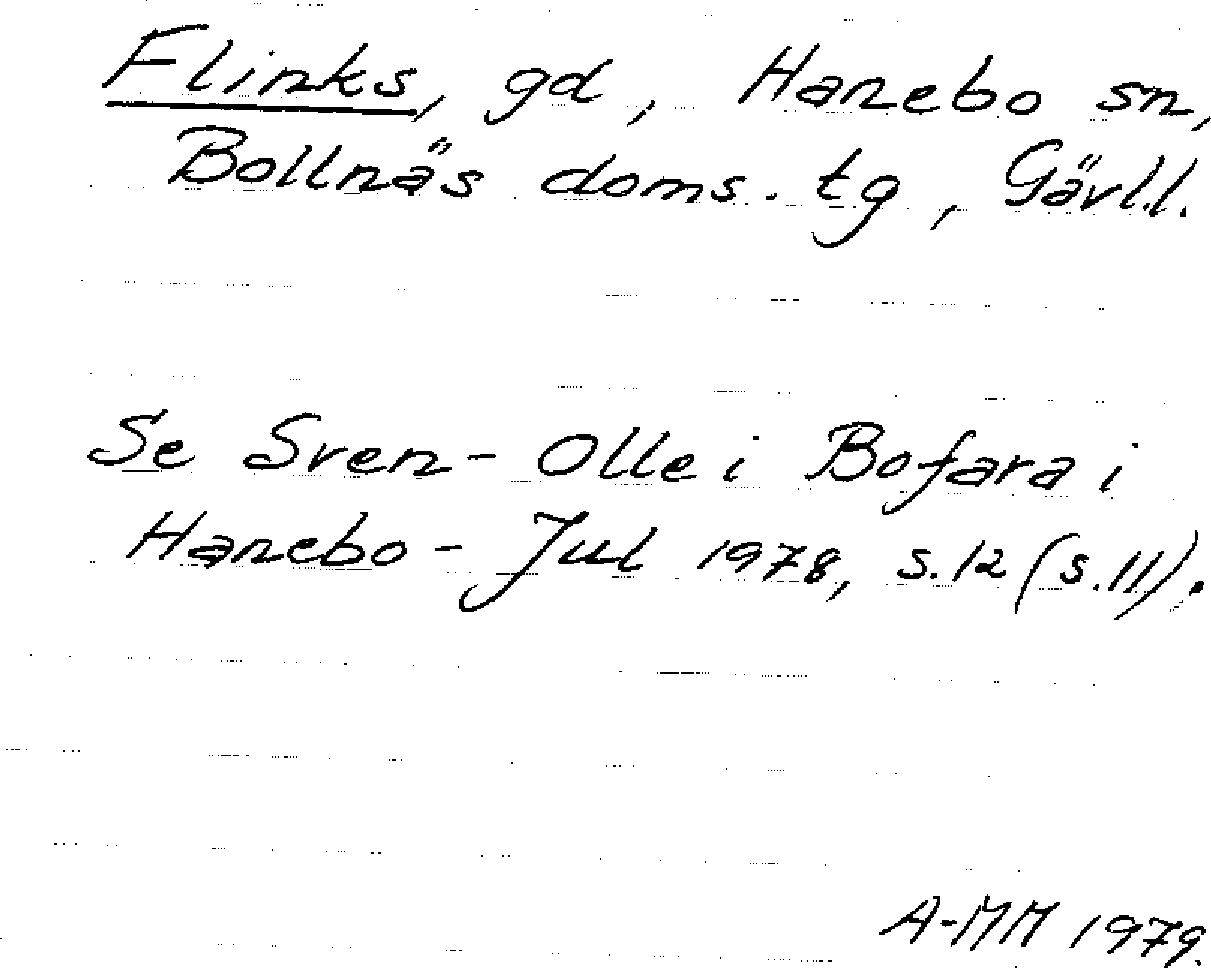 Flinks, gd, Hanebo sn,
Bollnäs doms. tg, Gävl.l.
Se Sven-Olle i Bofara i
Hanebo - Jul 1978, s.12 (s.11).
A-MM 1979.